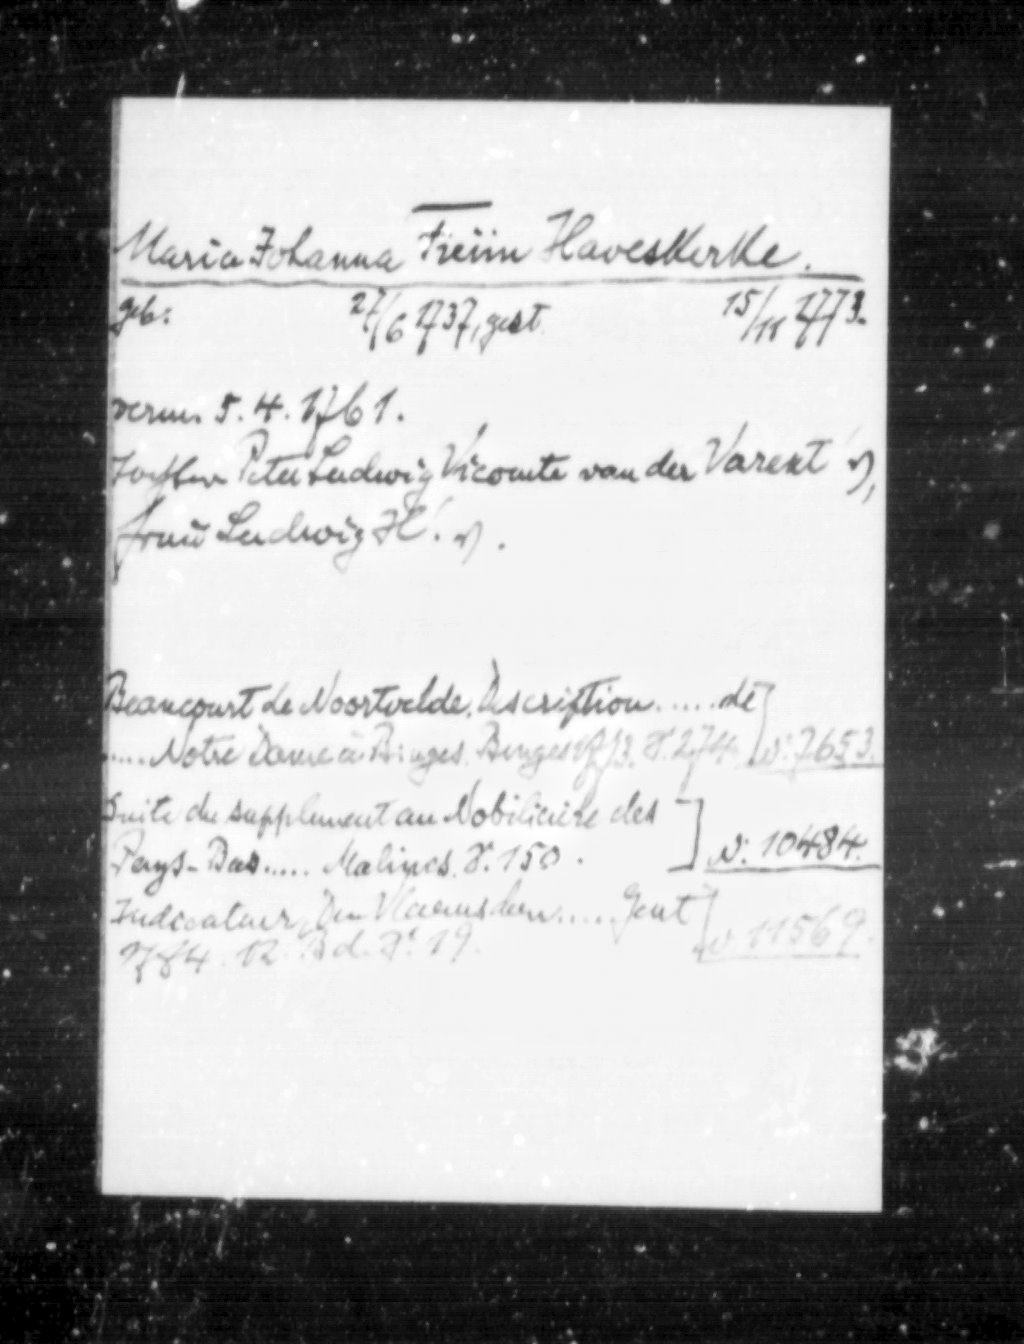 Maria Johanna Freiin Haveskerke.
geb: 27/6 1737, gest. 15/11 1773.
verm. 5.4.1761.
Tochter Peter Ludwig Vicomte van der Varent
frau Ludwig H.
Beaucourt de Noortvelde. Description ..... de
..... Notre Dame à Bruges. Bruges 1773. S. 274. N: 7653.
Suite du supplement au Nobiliaire des
Pays-Bas ..... Malines. S. 150. N: 10484.
Indicateur, Den Vlaemschen ..... Gent
1784. 12. Bd. S. 19. N 11569.